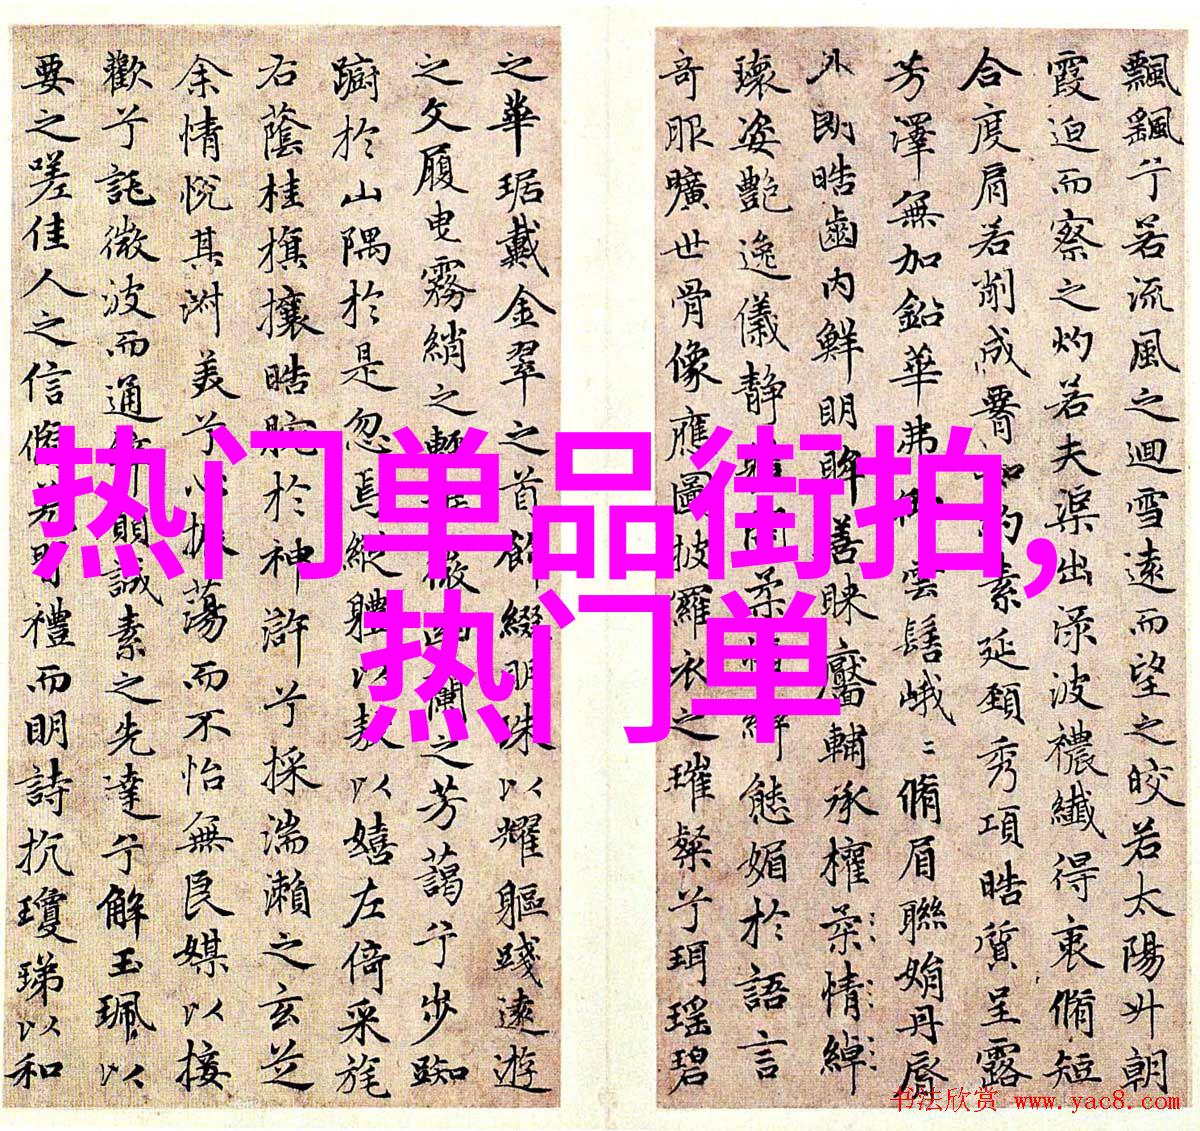 飄颻兮若流風之迴雪遠而望之皎若太陽升朝
霞迫而察之灼若夫渠出淥波禯纖得衷脩短
合度肩若削成腰如約素延頸秀項皓質呈露
芳澤無加鉛華弗御雲髻峨〻脩眉聯娟丹脣
外朗皓齒內鮮明眸善睞靨輔承權柔情綽
瓌姿艷逸儀靜柔情綽態媚於語言
奇服曠世骨像應圖披羅衣之璀粲兮珥瑤碧
之華琚戴金翠之首飾綴明珠以耀軀踐遠遊
之文履曳霧綃之輕蘭之芳藹兮步踟
躕於山隅於是忽焉縱體以遨以嬉左倚采旄
右蔭桂旗攘皓腕於神滸兮採湍瀨之玄芝
余情悅其淑美兮心振蕩而不怡無良媒以接
歡兮託微波而通辭願誠素之先達兮解玉珮以
要之嗟佳人之信脩羌習禮而明詩抗瓊珶以和
热门单品街拍,
热门单
书法欣赏 www.yac8.com